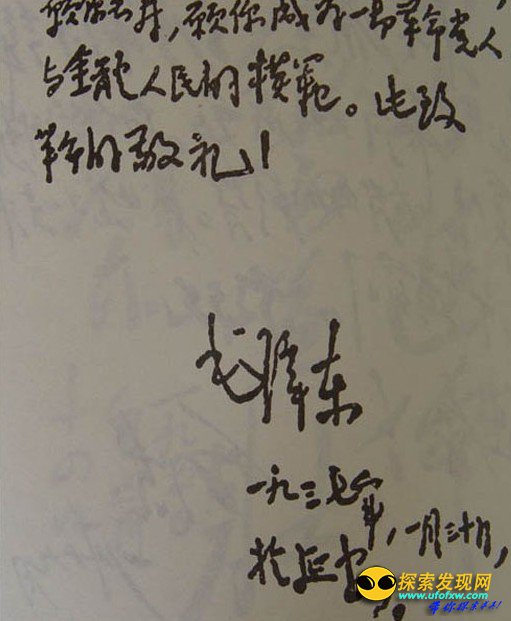 愿你成为一切革命党人
与全體人民的模範。此致
革命的敬礼!
毛泽东
一九三七年,一月三十日,
於延安。
探索发现网
www.ufofxw.com
带你探索未知!